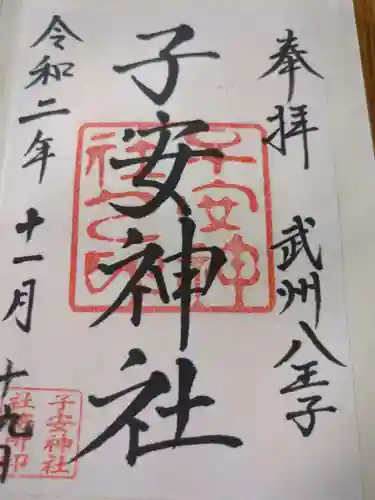 奉拝
武州八王子
子安神社
子安神
社之印
令和二年
十一月
十九日
子安神社
社務所印